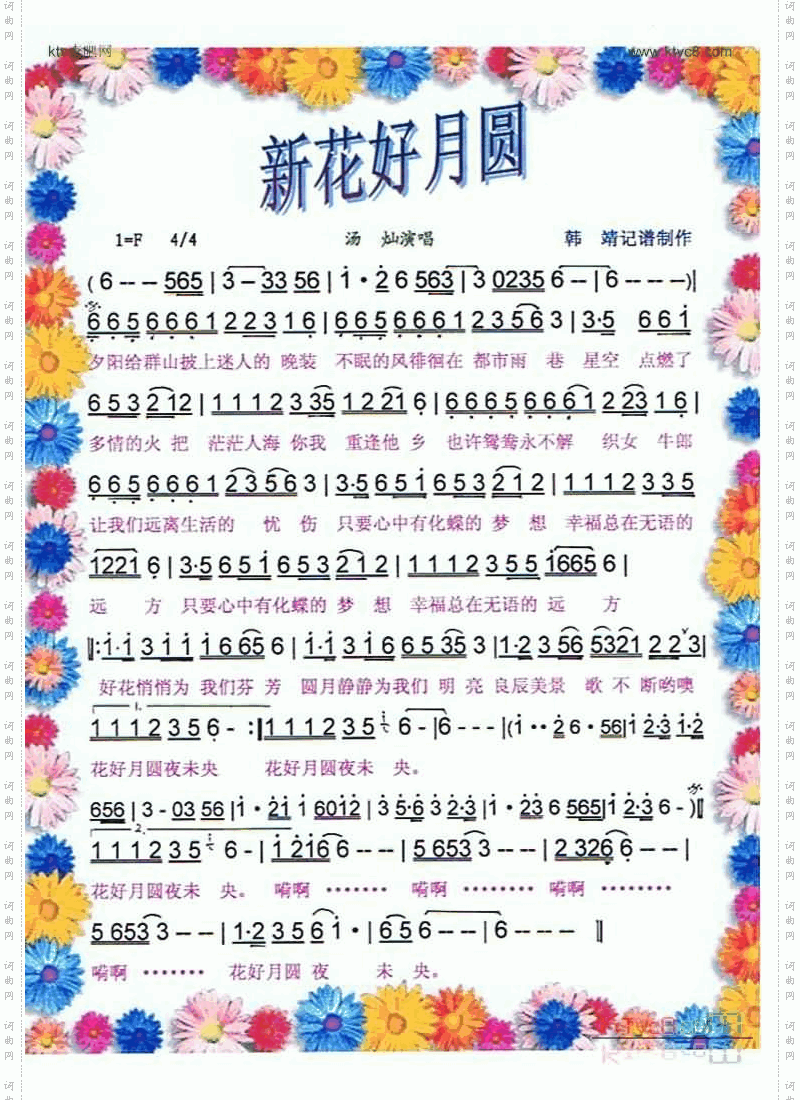 ktvc8.com
www.ktyc8.com
新花好月圆
1=F 4/4 汤 灿演唱 韩 靖记谱制作
(6 - - - 565 | 3 - 33 56 | 1 · 2 6 563 | 3 0235 6 - - | 6 - - - -)
6 6 5 6 6 6 1 2 2 3 1 6 | 6 6 5 6 6 6 1 2 3 5 6 3 | 3·5 6 6 1
夕阳给群山披上迷人的 晚装 不眠的风徘徊在 都市雨 巷 星空 点燃了
6 5 3 2 1 2 | 1 1 1 2 3 35 1 2 21 6 | 6 6 6 5 6 6 6 1 2 23 1 6 |
多情的火 把 茫茫人海 你我 重逢他 乡 也许鸳鸯永不解 织女 牛郎
6 6 5 6 6 6 1 2 3 5 6 3 | 3·5 6 5 1 6 5 3 2 1 2 | 1 1 1 2 3 3 5
让我们远离生活的 忧 伤 只要心中有化蝶的 梦 想 幸福总在无语的
1221 6 | 3·5 6 5 1 6 5 3 2 1 2 | 1 1 1 2 3 5 5 1665 6 |
远 方 只要心中有化蝶的 梦 想 幸福总在无语的 远 方
‖: 1·1 3 1 1 1 6 65 6 | 1·1 3 1 6 6 5 35 3 | 1·2 3 56 5321 2 2 3 |
好花悄悄为 我们芬 芳 圆月静静为我们 明 亮 良辰美景 歌 不 断哟噢
1.
1 1 1 2 3 5 6 - :‖ 1 1 1 2 3 5 6 - | 6 - - - | (1 · · 2 6 · 56 | 1 2·3 1·2
花好月圆夜未央 花好月圆夜未 央。
656 | 3 - 03 56 | 1 · 21 1 6012 | 3 5·6 3 2·3 | 1 · 23 6 565 | 1 2·3 6 -)‖
2.
1 1 1 2 3 5 6 - | 1 216 6 - - | 5 653 3 - - | 2 326 6 - - |
花好月圆夜未 央。 嗬啊 ······· 嗬啊 ········ 嗬啊 ········
5 653 3 - - | 1·2 3 5 6 1 · | 6 5 6 - - | 6 - - - ‖
嗬啊 ······· 花好月圆 夜 未 央。